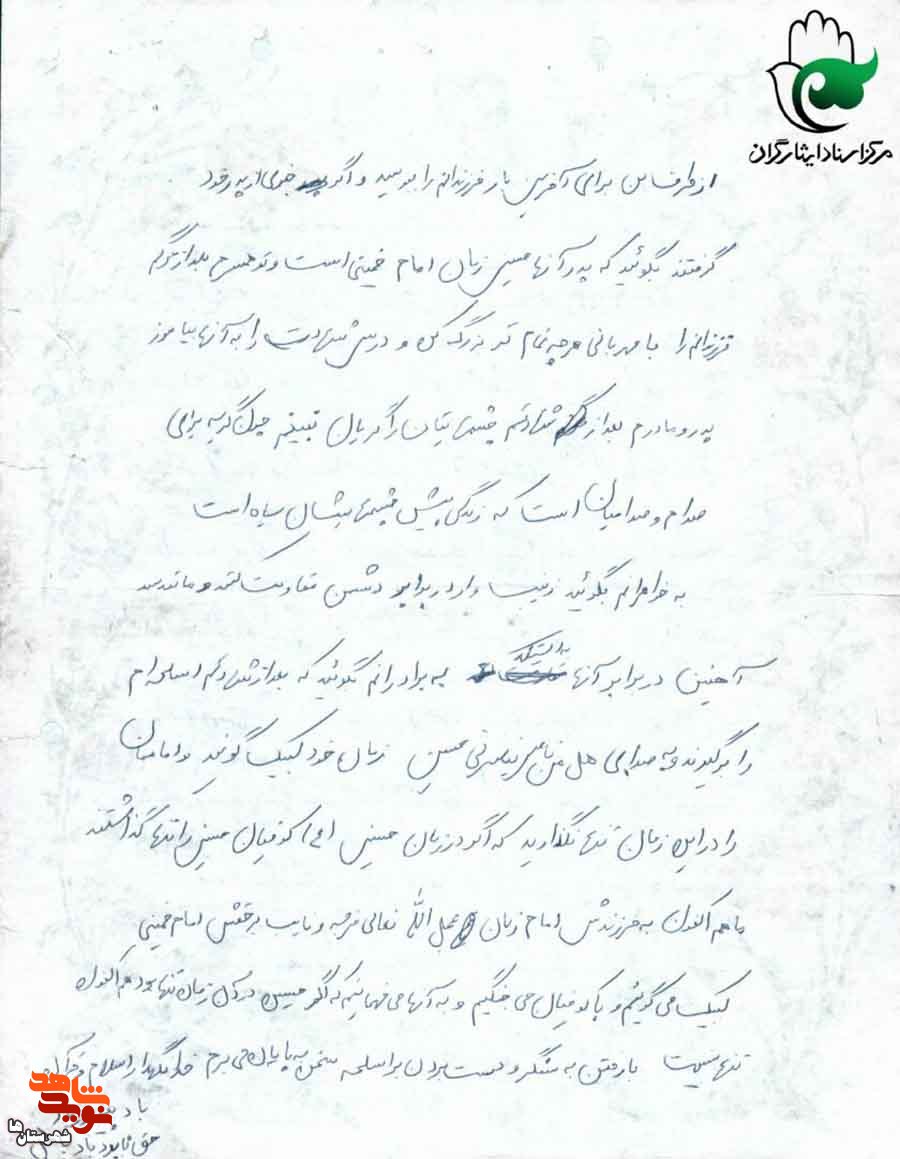 مرکز اسناد ایثارگران
از طرف من برای آخرین بار فرزندانم را ببوسید و اگر خبری از پدر خود
گرفتند بگوئید که پدر آنها حسین زمان امام خمینی است و تو همسرم بعد از مرگم
فرزندانم را با مهربانی هر چه تمام تر بزرگ کن و درس شهادت را به آنها بیاموز
پدر و مادرم بعد از شهادتم چشمهایتان را گریان نبینم چون گریه برای
صدام و صدامیان است که زندگی پیش چشمهایشان سیاه است
به خواهرانم بگوئید زینب وار در برابر دشمن مقاومت کنند و مانند سد
آهنین در برابر آنها بایستند به برادرانم بگوئید که بعد از شهادتم اسلحه ام
را برگیرند و به صدای هل من ناصر ینصرنی حسین زمان خود لبیک گویند و امامتان
را در این زمان تنها نگذارید که اگر در زمان حسین (ع) کوفیان حسین را تنها گذاشتند
ما هم اکنون به فرزندش امام زمان عجل الله تعالی فرجه و نایب برحقش امام خمینی
لبیک می گوئیم و با کوفیان می جنگیم و به آنها می فهمانیم که اگر حسین در آن زمان تنها بود هم اکنون
تنها نیست با رفتن به سنگر و دست بردن بر اسلحه سخن به پایان می برم خدا نگهدار اسلام و قرآن
باد
حق نابود باد
نوید شاهد
شهرستان ها